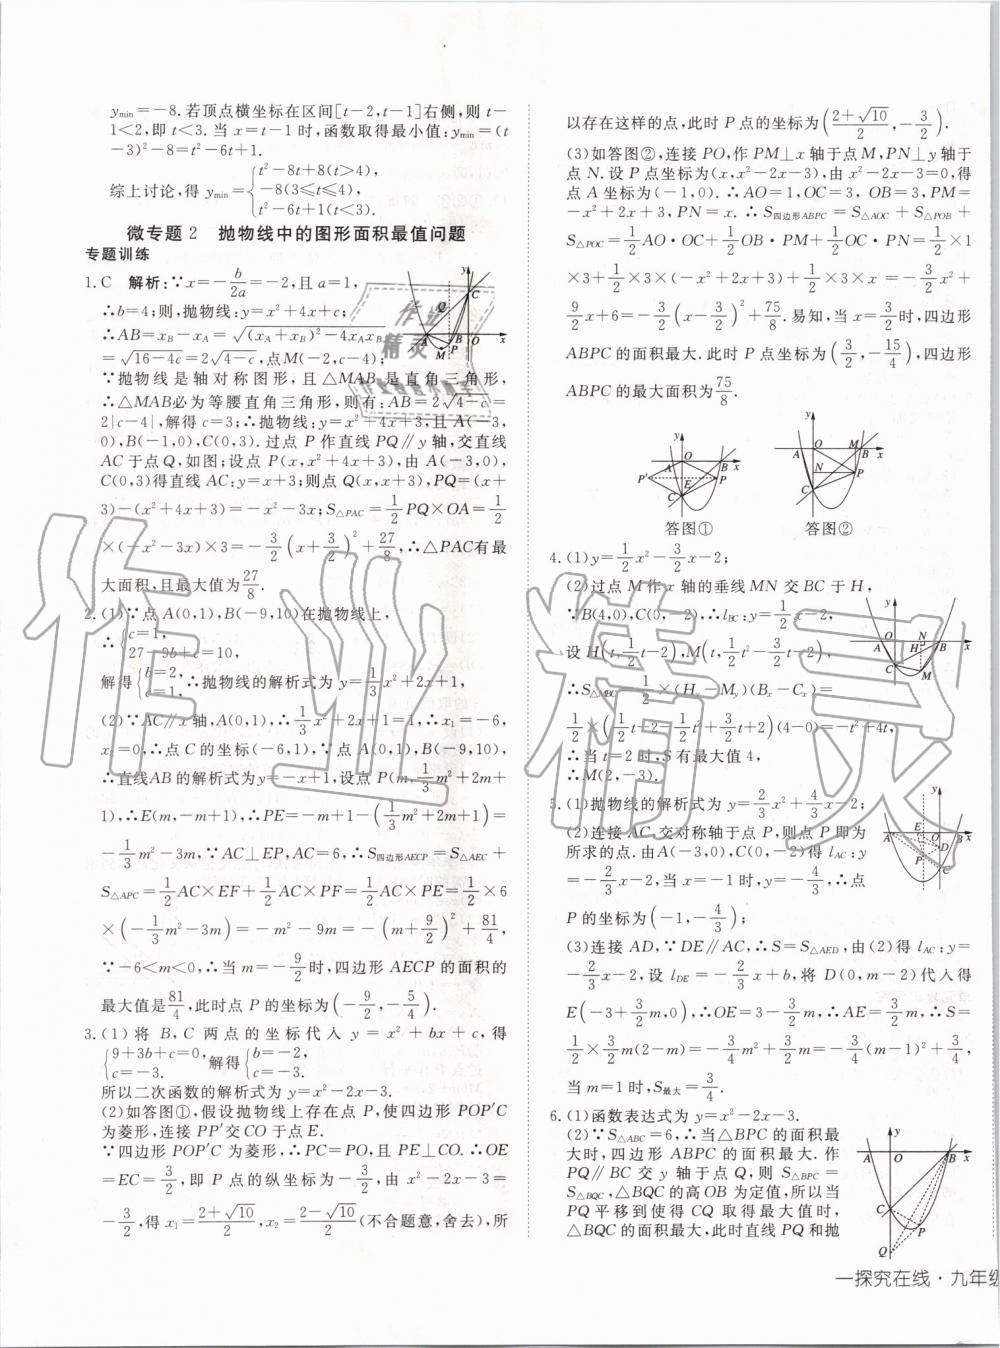 y_min=-8.若顶点横坐标在区间[t-2,t-1]右侧,则t-
1<2,即t<3.当x=t-1时,函数取得最小值:y_min=(t
-3)²-8=t²-6t+1.
综上讨论,得y_min={t²-8t+8(t>4), -8(3≤t≤4), t²-6t+1(t<3).
微专题2 抛物线中的图形面积最值问题
专题训练
1.C 解析:∵x=-b/2a=-2,且a=1,
∴b=4;则,抛物线:y=x²+4x+c;
∴AB=x_B-x_A=√((x_A+x_B)²-4x_Ax_B)
=√(16-4c)=2√(4-c),点M(-2,c-4);
∵抛物线是轴对称图形,且△MAB是直角三角形,
∴△MAB必为等腰直角三角形,则有:AB=2√(4-c)=
2|c-4|,解得c=3;∴抛物线:y=x²+4x+3,且A(-3,
0),B(-1,0),C(0,3).过点P作直线PQ∥y轴,交直线
AC于点Q,如图;设点P(x,x²+4x+3),由A(-3,0),
C(0,3)得直线AC:y=x+3;则点Q(x,x+3),PQ=(x+
3)-(x²+4x+3)=-x²-3x;S△PAC=1/2PQ×OA=1/2
×(-x²-3x)×3=-3/2(x+3/2)²+27/8,∴△PAC有最
大面积,且最大值为27/8.
2.(1)∵点A(0,1),B(-9,10)在抛物线上,
∴{c=1, 27-9b+c=10,
解得{b=2, c=1, ∴抛物线的解析式为y=1/3x²+2x+1,
(2)∵AC∥x轴,A(0,1),∴1/3x²+2x+1=1,∴x₁=-6,
x₂=0,∴点C的坐标(-6,1),∵点B的坐标(-9,10),
∴直线AB的解析式为y=-x+1,设点P(m,1/3m²+2m+
1),∴E(m,-m+1),∴PE=-m+1-(1/3m²+2m+1)=
-1/3m²-3m,∵AC⊥EP,AC=6,∴S四边形AECP=S△AEC+
S△APC=1/2AC×EF+1/2AC×PF=1/2AC×PE=1/2×6
×(-1/3m²-3m)=-m²-9m=-(m+9/2)²+81/4,
∵-6<m<0,∴当m=-9/2时,四边形AECP的面积的
最大值是81/4,此时点P的坐标为(-9/2,-5/4).
3.(1)将B,C两点的坐标代入y=x²+bx+c,得
{9+3b+c=0, c=-3. 解得{b=-2, c=-3.
所以二次函数的解析式为y=x²-2x-3.
(2)如答图①,假设抛物线上存在点P,使四边形POP'C
为菱形,连接PP'交CO于点E.
∵四边形POP'C为菱形,∴PC=PO,且PE⊥CO.∴OE
=EC=3/2,即点P的纵坐标为-3/2,由x²-2x-3=
-3/2,得x₁=(2+√10)/2,x₂=(2-√10)/2(不合题意,舍去),所
以存在这样的点,此时P点的坐标为((2+√10)/2,-3/2).
(3)如答图②,连接PO,作PM⊥x轴于点M,PN⊥y轴于
点N.设P点坐标为(x,x²-2x-3),由x²-2x-3=0,得
点A坐标为(-1,0).∴AO=1,OC=3,OB=3,PM=
-x²+2x+3,PN=x.∴S四边形ABPC=S△AOC+S△POB+
S△POC=1/2AO·OC+1/2OB·PM+1/2OC·PN=1/2×1
×3+1/2×3×(-x²+2x+3)+1/2×3×x=-3/2x²+
9/2x+6=-3/2(x-3/2)²+75/8.易知,当x=3/2时,四边形
ABPC的面积最大.此时P点坐标为(3/2,-15/4),四边形
ABPC的最大面积为75/8.
答图① 答图②
4.(1)y=1/2x²-3/2x-2;
(2)过点M作x轴的垂线MN交BC于H,
∵B(4,0),C(0,-2),∴l_BC:y=1/2x-2,
设H(t,1/2t-2),M(t,1/2t²-3/2t-2),
∴S△MBC=1/2×(H_y-M_y)(B_x-C_x)=
1/2×(1/2t-2-1/2t²+3/2t+2)(4-0)=-t²+4t,
∴当t=2时,S有最大值4,
∴M(2,-3).
5.(1)抛物线的解析式为y=2/3x²+4/3x-2;
(2)连接AC,交对称轴于点P,则点P即为
所求的点.由A(-3,0),C(0,-2)得l_AC:y
=-2/3x-2,当x=-1时,y=-4/3,∴点
P的坐标为(-1,-4/3);
(3)连接AD,∵DE∥AC,∴S=S△AED,由(2)得l_AC:y=
-2/3x-2,设l_DE=-2/3x+b,将D(0,m-2)代入得
E(-3+3/2m,0),∴OE=3-3/2m,∴AE=3/2m,∴S=
1/2×3/2m(2-m)=-3/4m²+3/2m=-3/4(m-1)²+3/4,
当m=1时,S最大=3/4.
6.(1)函数表达式为y=x²-2x-3.
(2)∵S△ABC=6,∴当△BPC的面积最
大时,四边形ABPC的面积最大.作
PQ∥BC交y轴于点Q,则S△BPC=
S△BQC,△BQC的高OB为定值,所以当
PQ平移到使得CQ取得最大值时,
△BQC的面积最大,此时直线PQ和抛
一探究在线·九年级